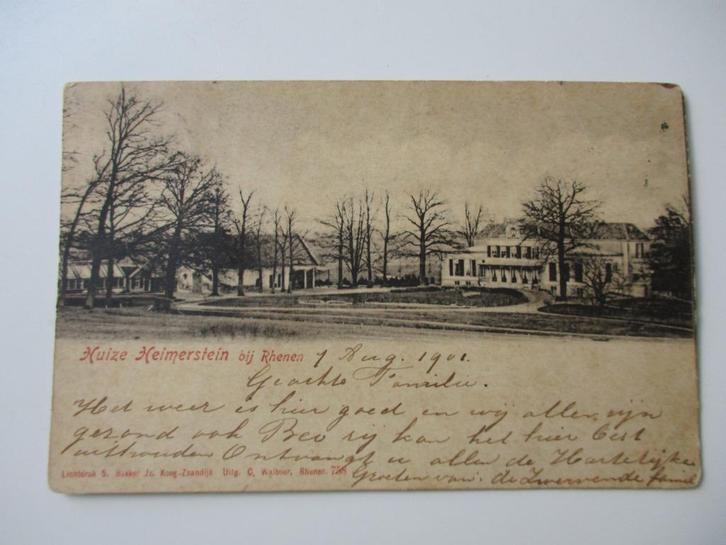 Huize Heimerstein bij Rhenen 7 Aug. 1901.
Geachte Familie.
Het weer is hier goed en wij allen zijn
gezond ook Bev rij kan het hier best
uithouden Ontvangt u allen de Hartelijke
Groeten van: de Zwervende famil
Lichtdruk S. Bakker Jz. Koog-Zaandijk Uitg. C. Rhenen.